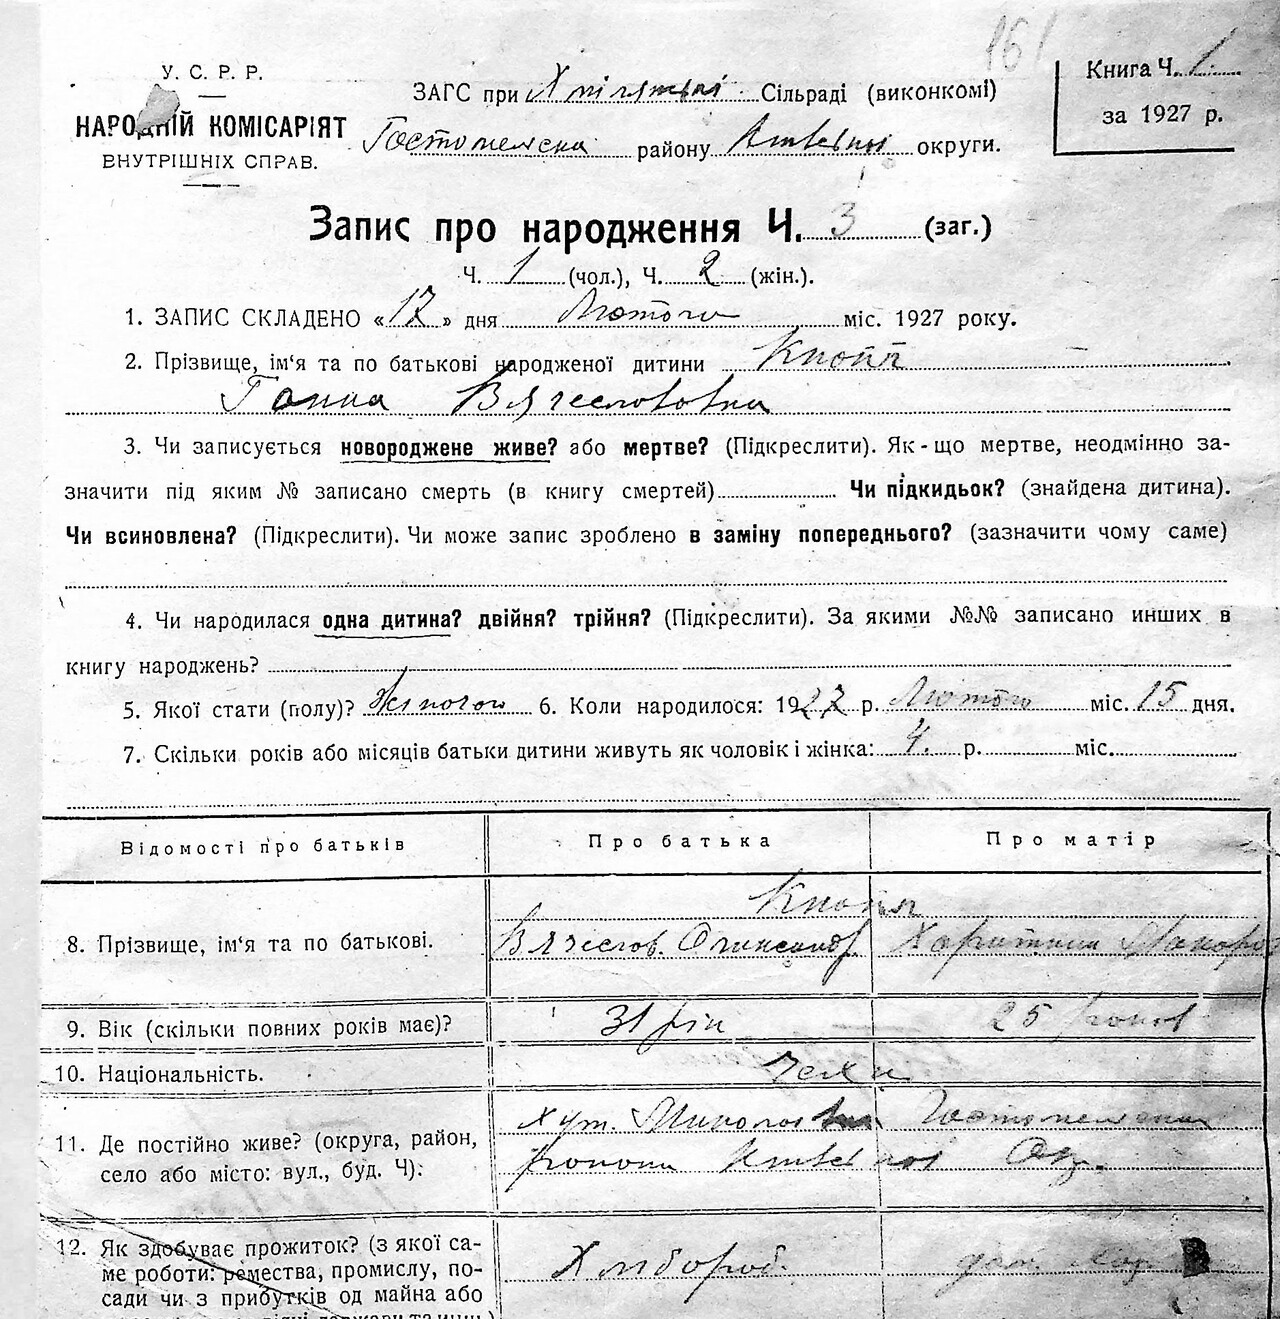 161
У. С. Р. Р.
НАРОДНІЙ КОМІСАРІЯТ
ВНУТРІШНІХ СПРАВ.
ЗАГС при Сільраді (виконкомі)
району округи.
Книга Ч. 1
за 1927 р.
Запис про народження Ч. 3 (заг.)
Ч. 1 (чол.), Ч. 2 (жін.).
1. ЗАПИС СКЛАДЕНО «17» дня Лютого міс. 1927 року.
2. Прізвище, ім‘я та по батькові народженої дитини
Ганна Вячеславовна
3. Чи записується новороджене живе? або мертве? (Підкреслити). Як-що мертве, неодмінно за-
значити під яким № записано смерть (в книгу смертей) Чи підкидьок? (знайдена дитина).
Чи всиновлена? (Підкреслити). Чи може запис зроблено в заміну попереднього? (зазначити чому саме)
4. Чи народилася одна дитина? двійня? трійня? (Підкреслити). За якими №№ записано инших в
книгу народжень?
5. Якої стати (полу)? жіночої 6. Коли народилося: 1927 р. Лютого міс. 15 дня.
7. Скільки років або місяців батьки дитини живуть як чоловік і жінка: 4. р. міс.
Відомості про батьків Про батька Про матір
8. Прізвище, ім‘я та по батькові. Вячеслов.
9. Вік (скільки повних років має)? 31 рік 25 років
10. Національність. Чехи
11. Де постійно живе? (округа, район,
село або місто: вул., буд. Ч). хут.
12. Як здобуває прожиток? (з якої са-
ме роботи: ремества, промислу, по-
сади чи з прибутків од майна або
Хлібороб.